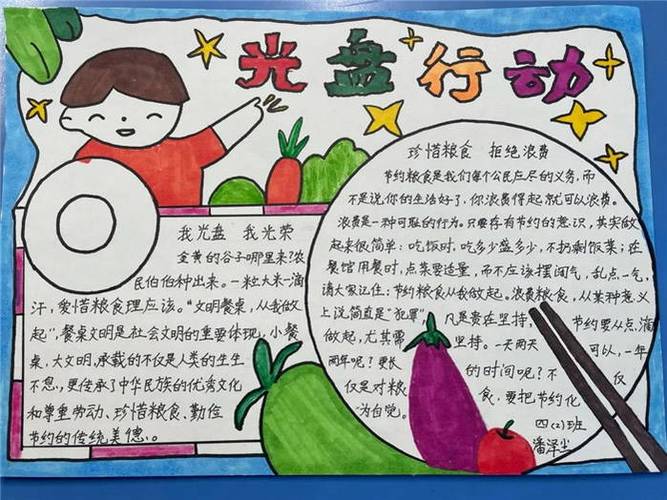 光盘行动
我光盘 我光荣
金黄的谷子哪里来?农
民伯伯种出来。一粒大米一滴
汗,爱惜粮食理应该。“文明餐桌,从我做
起”,餐桌文明是社会文明的重要体现,小餐
桌,大文明,承载的不仅是人类的生生
不息,更传承了中华民族的优秀文化
和尊重劳动、珍惜粮食、勤俭
节约的传统美德。
珍惜粮食 拒绝浪费
节约粮食是我们每个公民应尽的义务,而
不是说你的生活好了,你浪费得起就可以浪费。
浪费是一种可耻的行为。只要存有节约的意识,其实做
起来很简单:吃饭时,吃多少盛多少,不扔剩饭菜;在
餐馆用餐时,点菜要适量,而不应该摆阔气,乱点一气,
请大家记住:节约粮食从我做起。浪费粮食,从某种意义
上说简直是“犯罪” 凡是贵在坚持, 节约要从点,滴
做起,尤其需 坚持。一天两天 可以,一年
两年呢?更长 的时间呢?不 仅
仅是对粮 食,要把节约化
为自觉。
四(2)班
潘泽尘